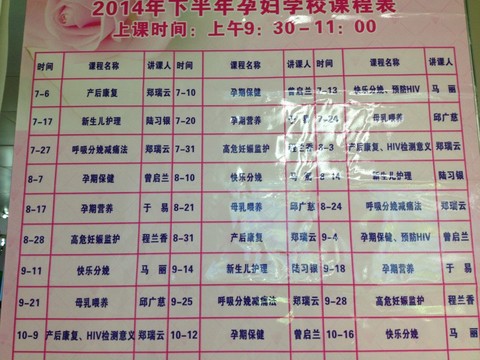 2014年下半年孕妇学校课程表
上课时间：上午9：30-11：00
时间 课程名称 讲课人 时间 课程名称 讲课人 时间 课程名称 讲课人
7-6 产后康复 郑瑞云 7-10 孕期保健 曾启兰 7-13 快乐分娩、预防HIV 马丽
7-17 新生儿护理 陆习银 7-20 孕期营养 7-24 母乳喂养 邱广慈
7-27 呼吸分娩减痛法 郑瑞云 7-31 高危妊娠监护 程兰香 8-3 产后康复、HIV检测意义 郑瑞云
8-7 孕期保健 曾启兰 8-10 快乐分娩 马 8-14 新生儿护理 陆习银
8-17 孕期营养 于易 8-21 母乳喂养 邱广慈 8-24 呼吸分娩减痛法 郑瑞云
8-28 高危妊娠监护 程兰香 8-31 产后康复 郑瑞云 9-4 孕期保健、预防HIV 曾启兰
9-11 快乐分娩 马丽 9-14 新生儿护理 陆习银 9-18 孕期营养 于易
9-21 母乳喂养 邱广慈 9-25 呼吸分娩减痛法 郑瑞云 9-28 高危妊娠监护 程兰香
10-9 产后康复、HIV检测意义 郑瑞云 10-12 孕期保健 曾启兰 10-16 快乐分娩 马丽